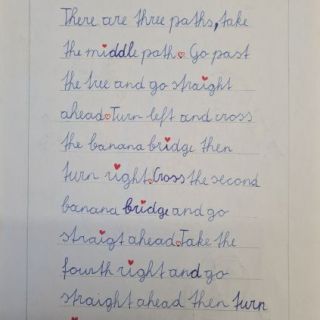 There are three paths, take
the middle path. Go past
the tree and go straight
ahead. Turn left and cross
the banana bridge then
turn right. Cross the second
banana bridge and go
straigt ahead. Take the
fourth right and go
straight ahead then turn